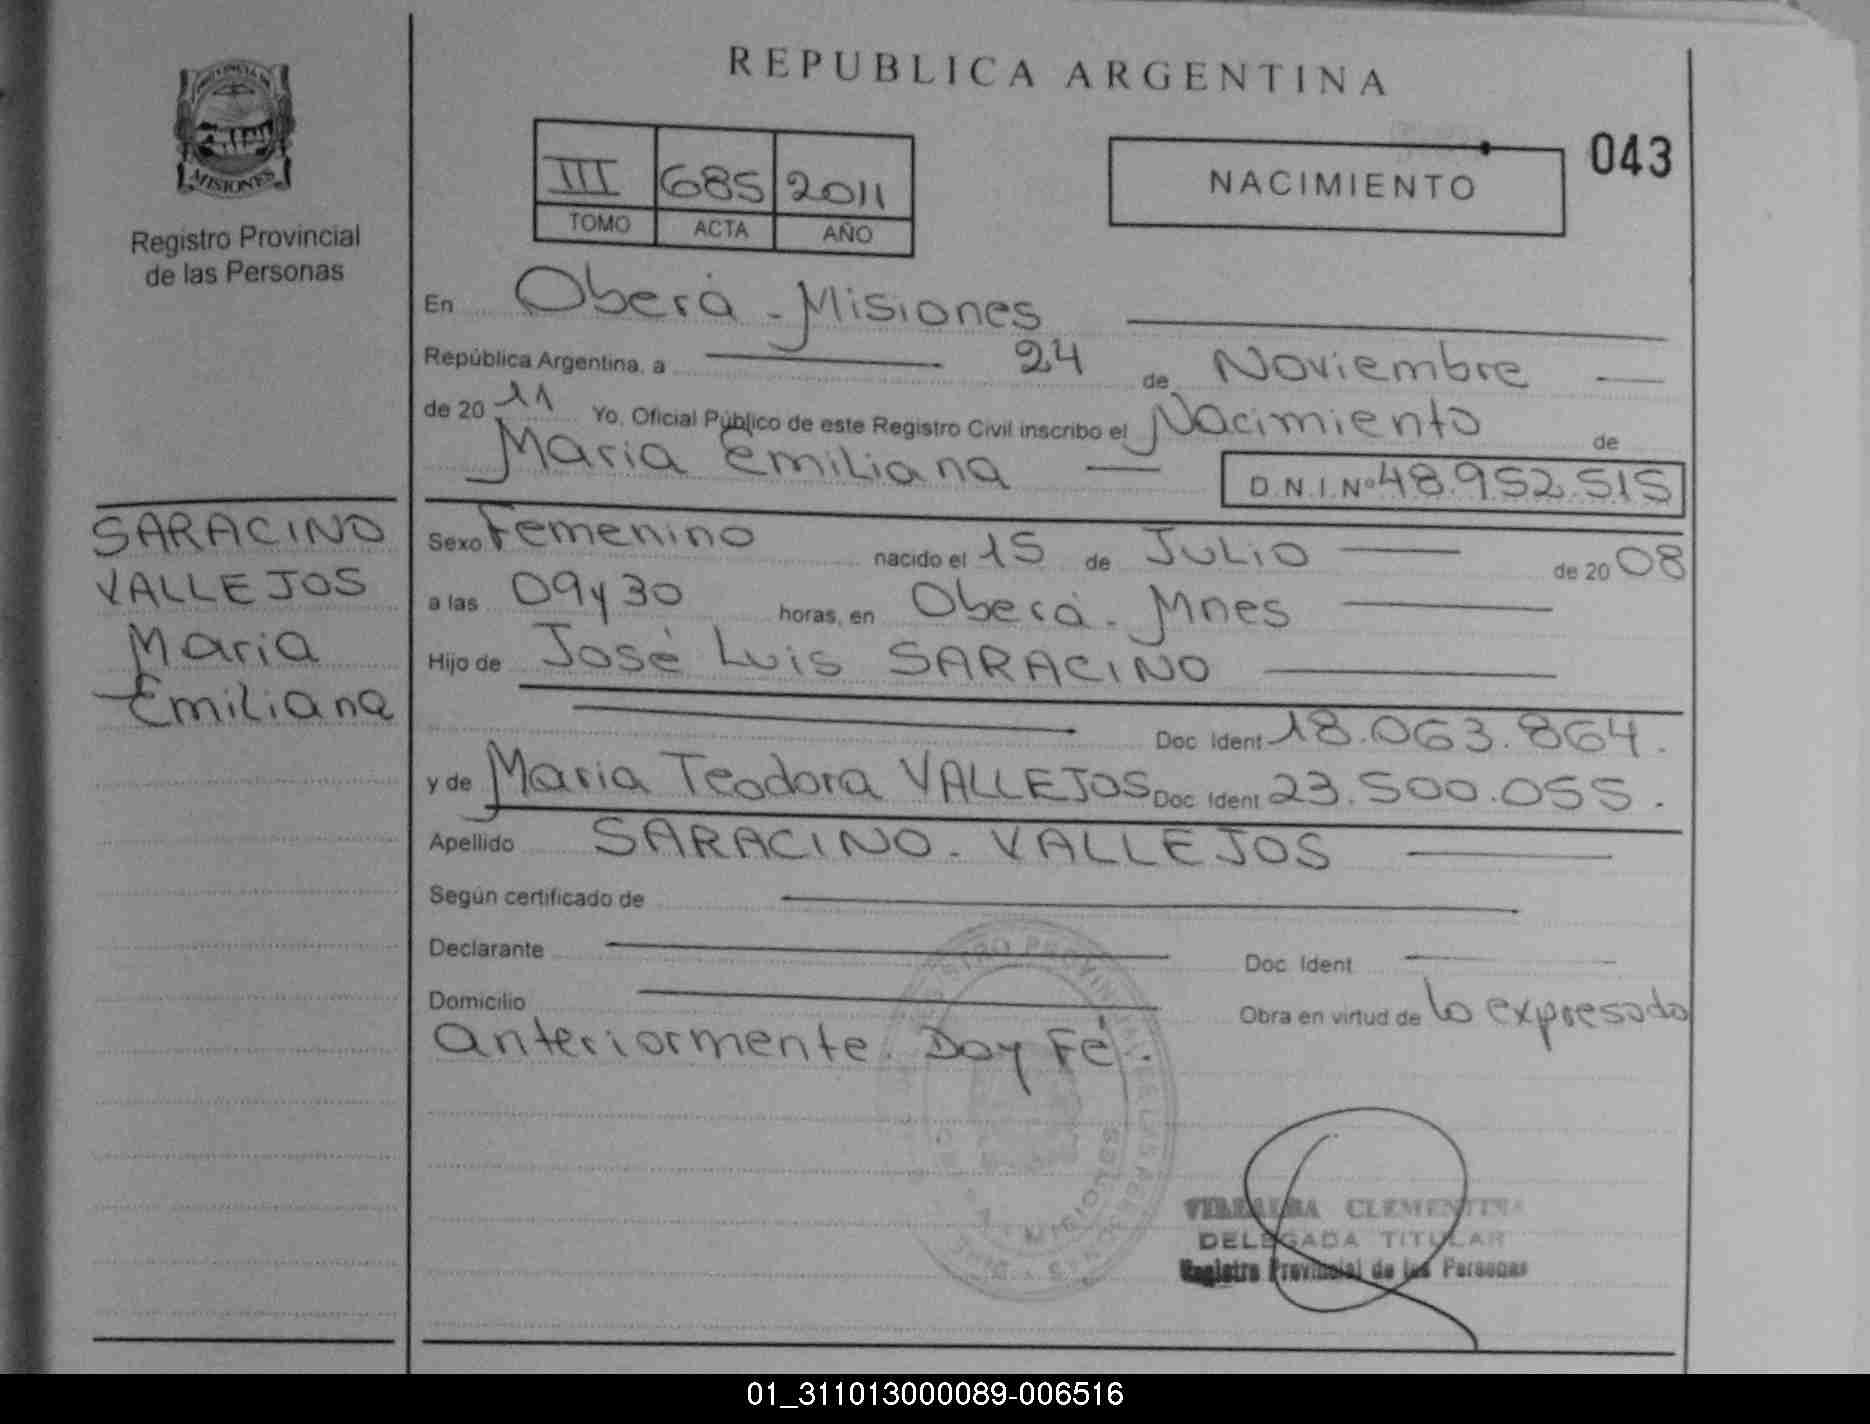 REPUBLICA ARGENTINA
PROVINCIA DE
MISIONES
Registro Provincial
de las Personas
III 685 2011
TOMO ACTA AÑO
NACIMIENTO
043
En Oberá - Misiones
República Argentina, a 24 de Noviembre
de 20 11 Yo, Oficial Público de este Registro Civil inscribo el Nacimiento de
Maria Emiliana D.N.I.Nº 48.952.515
SARACINO
VALLEJOS
Maria
Emiliana
Sexo Femenino nacido el 15 de Julio de 20 08
a las 09 y 30 horas, en Oberá - Mnes
Hijo de José Luis SARACINO
Doc Ident 18.063.864.
y de Maria Teodora VALLEJOS Doc Ident 23.500.055.
Apellido SARACINO - VALLEJOS
Según certificado de
Declarante Doc. Ident
Domicilio Obra en virtud de lo expresado
anteriormente. Doy Fé.
VILLALBA CLEMENTINA
DELEGADA TITULAR
Registro Provincial de las Personas
01_311013000089-006516